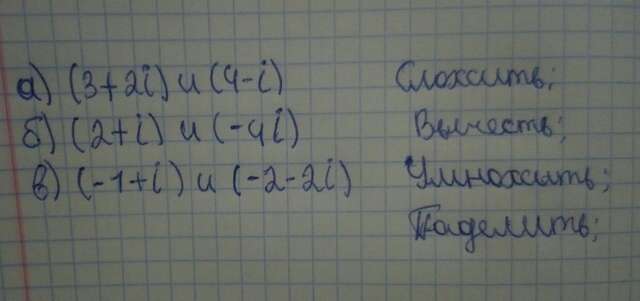 а) (3+2i) и (4-i) Сложить;
б) (2+i) и (-4i) Вычесть;
в) (-1+i) и (-2-2i) Умножить;
Поделить;